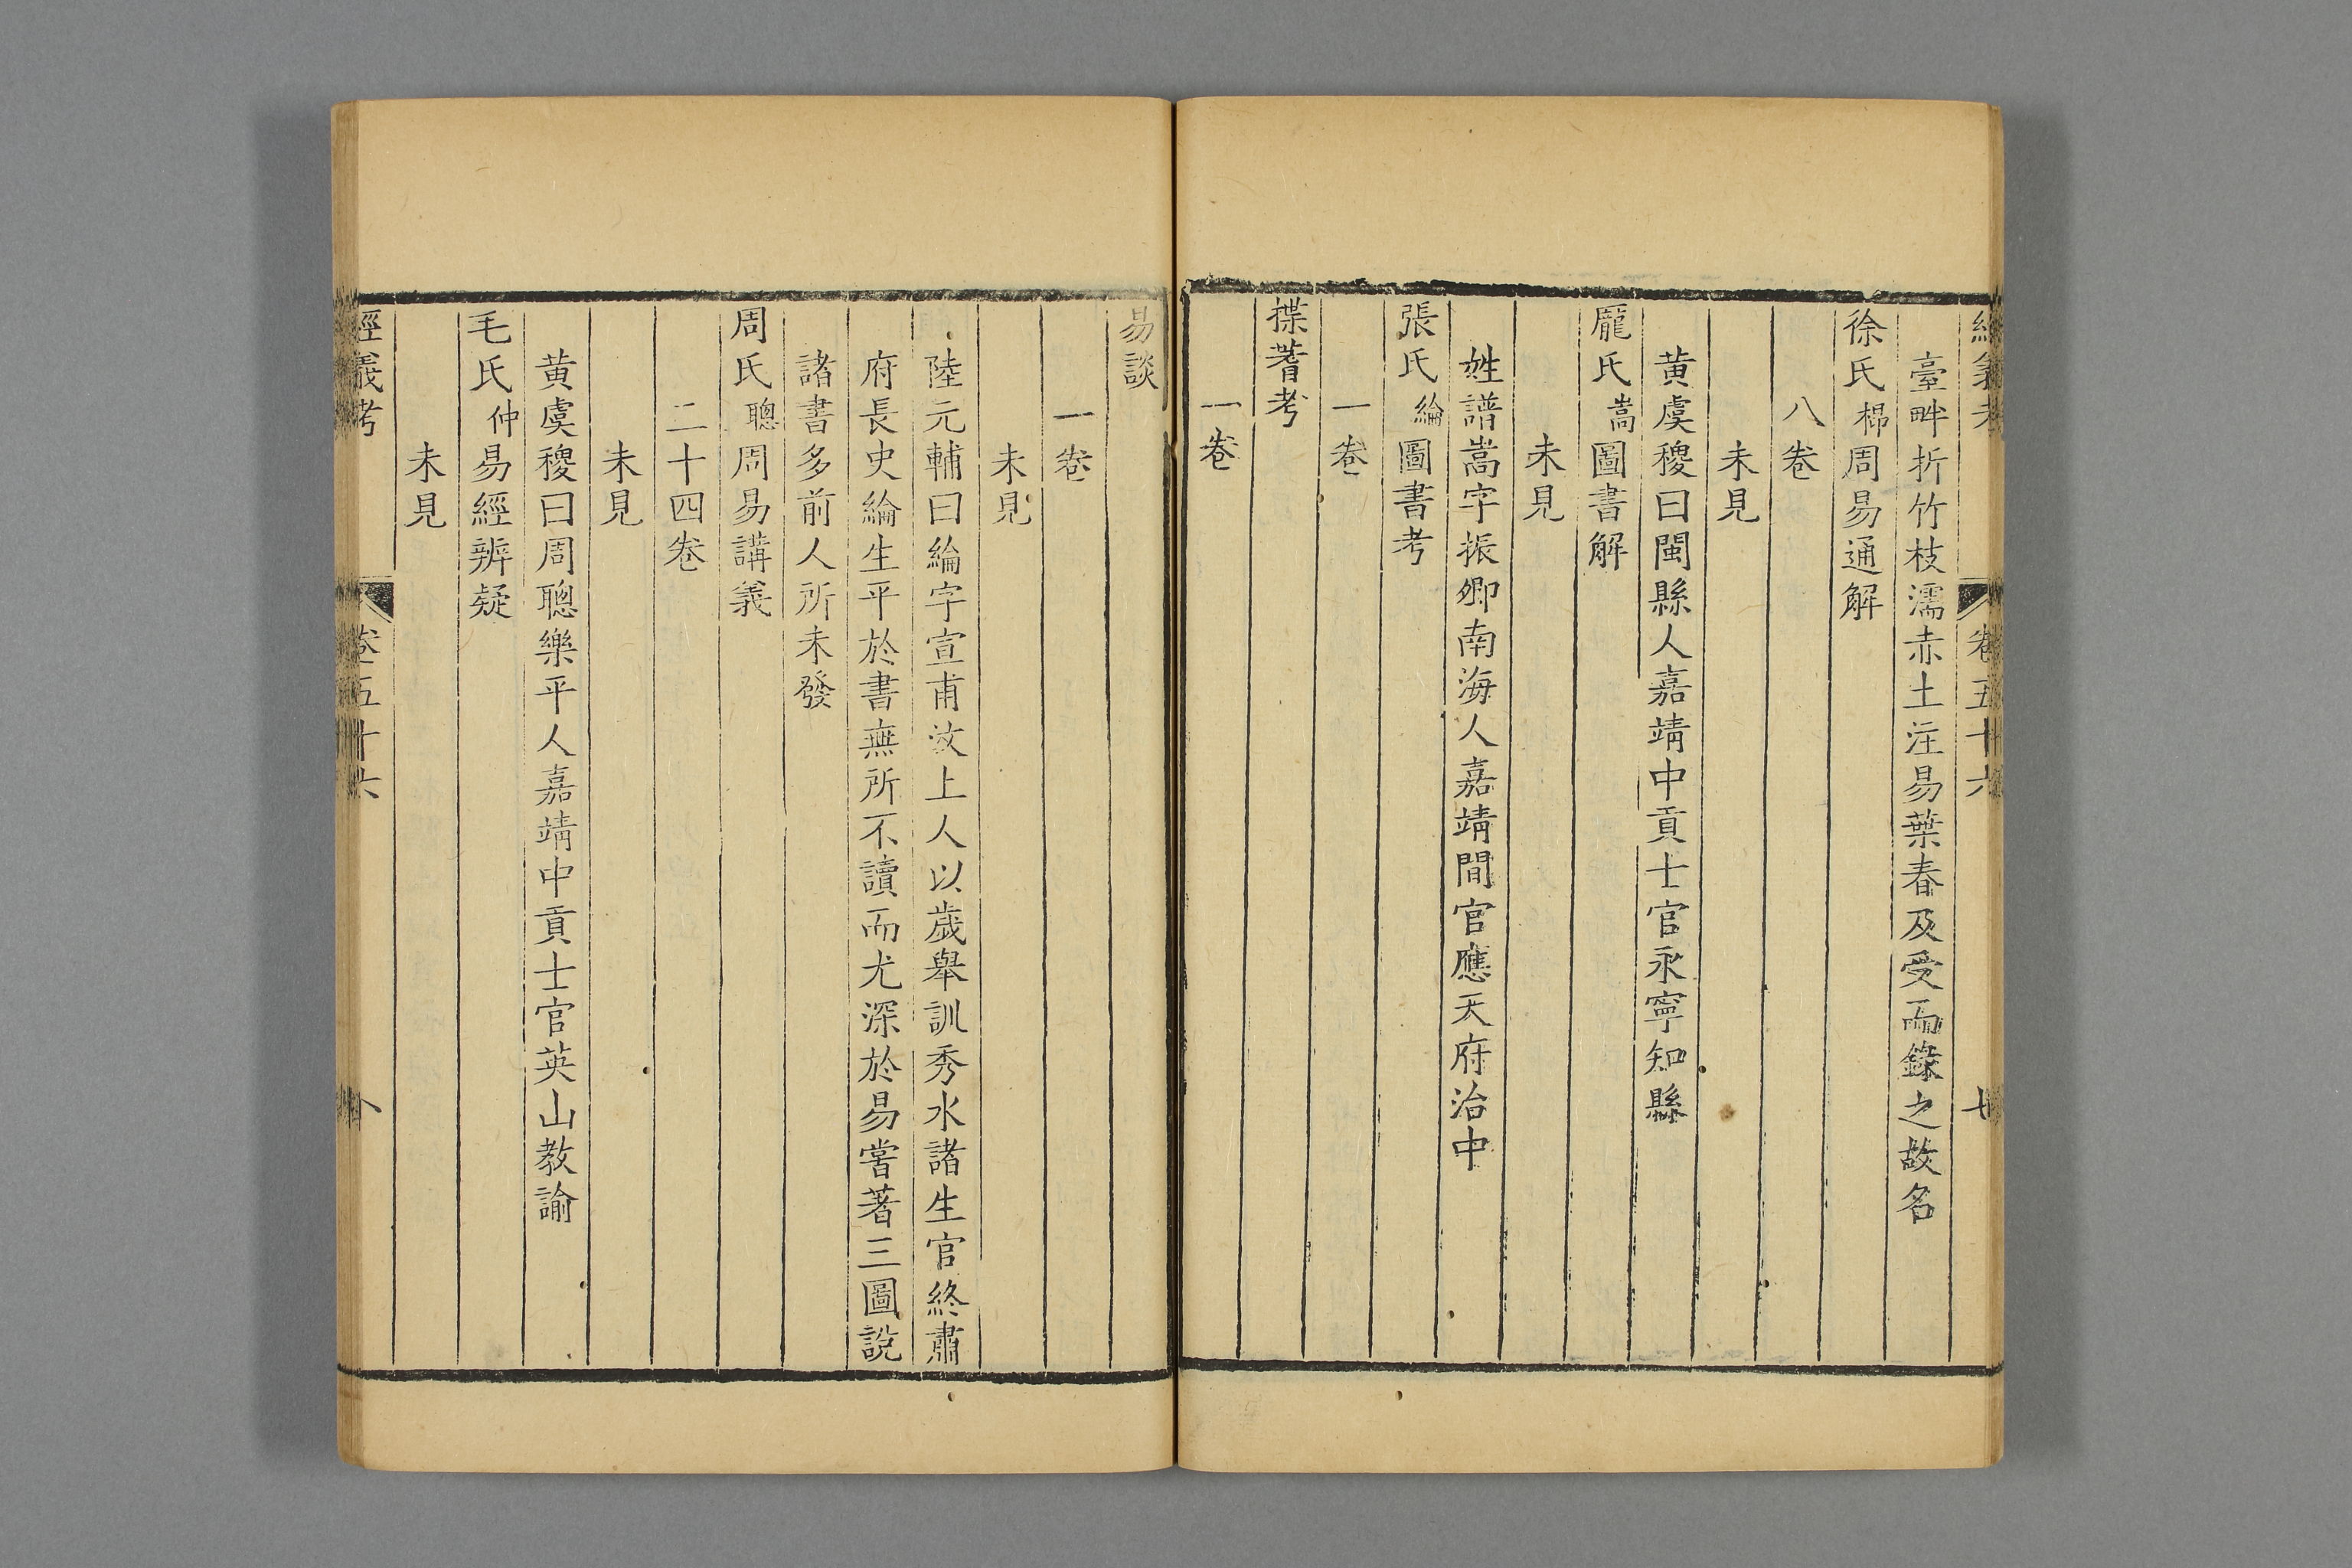 經義考 卷五十六
臺畔折竹枝濡赤土注易葉春及受而錄之故名
徐氏㮌周易通解
八卷
未見
黄虞稷曰閩縣人嘉靖中貢士官永寧知縣
龐氏嵩圖書解
未見
姓譜嵩字振卿南海人嘉靖間官應天府治中
張氏綸圖書考
一卷
揲蓍考
一卷
易談
一卷
未見
陸元輔曰綸字宣甫汶上人以歲舉訓秀水諸生官終肅
府長史綸生平於書無所不讀而尤深於易嘗著三圖説
諸書多前人所未發
周氏聰周易講義
二十四卷
未見
黄虞稷曰周聰樂平人嘉靖中貢士官英山教諭
毛氏仲易經辨疑
未見
經義考 卷五十六 八